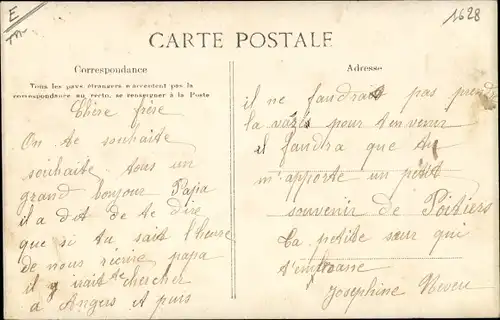 E
1628
CARTE POSTALE
Correspondance
Tous les pays étrangers n'acceptent pas la
correspondance au recto, se renseigner à la Poste
Chère frère
On te souhaite
souhaite tous un
grand bonjour Papa
il a dit de te dire
que si tu sait l'heure
de nous écrire papa
il y irait te chercher
a Angers et puis
Adresse
il ne faudrat pas prendre
la pour t'en venir
il faudra que tu
m'apporte un petit
souvenir de Poitiers
Ta petite sœur qui
t'embrasse
Josephine Neveu